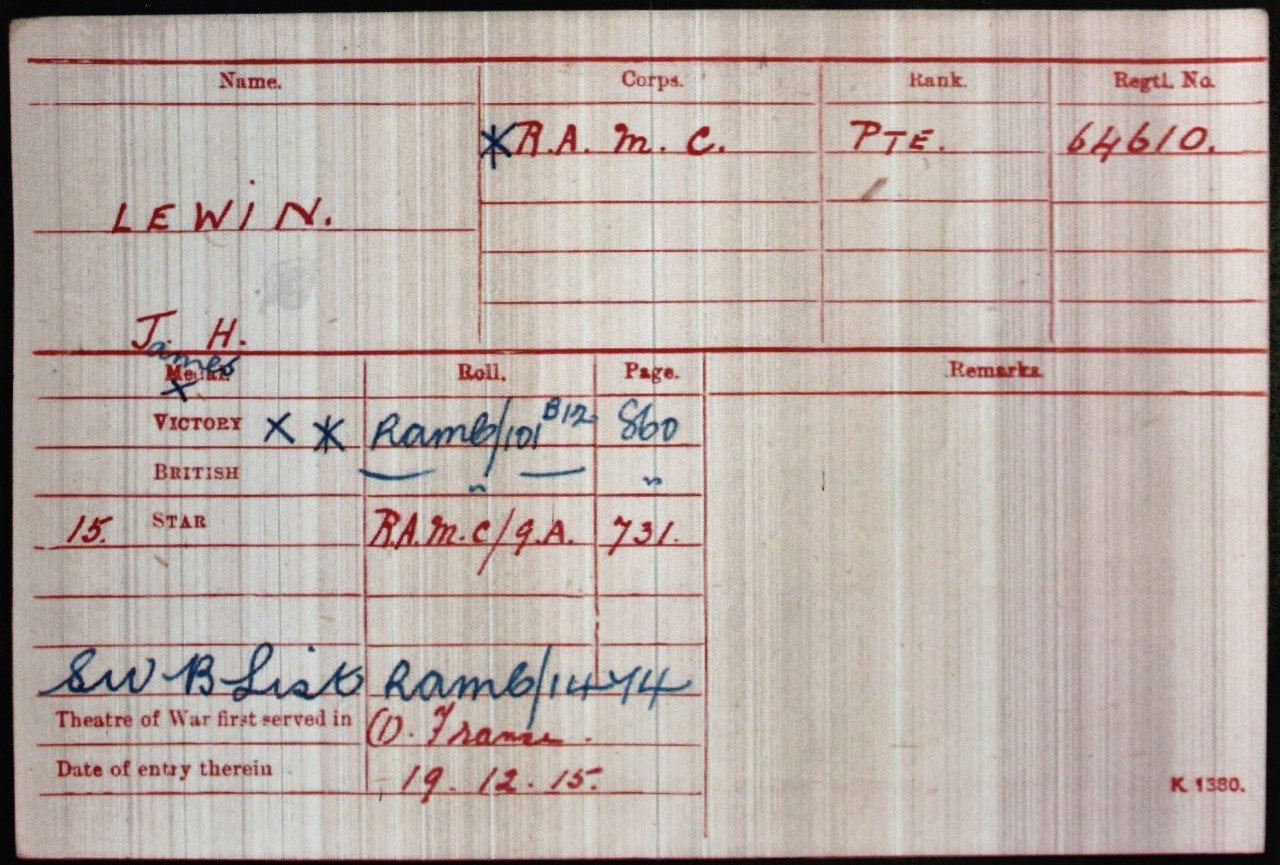 Name. Corps. Rank. Regtl. No.
*R.A.M.C. PTE. 64610.
LEWIN.
J. H.
James
Medal. Roll. Page. Remarks.
X
VICTORY X * Ramb/101 B12 860
BRITISH — „ — „
15. STAR R.A.M.C/9.A. 731.
SW B List Ramb/1474
Theatre of War first served in (1). France.
Date of entry therein 19.12.15.
K. 1380.